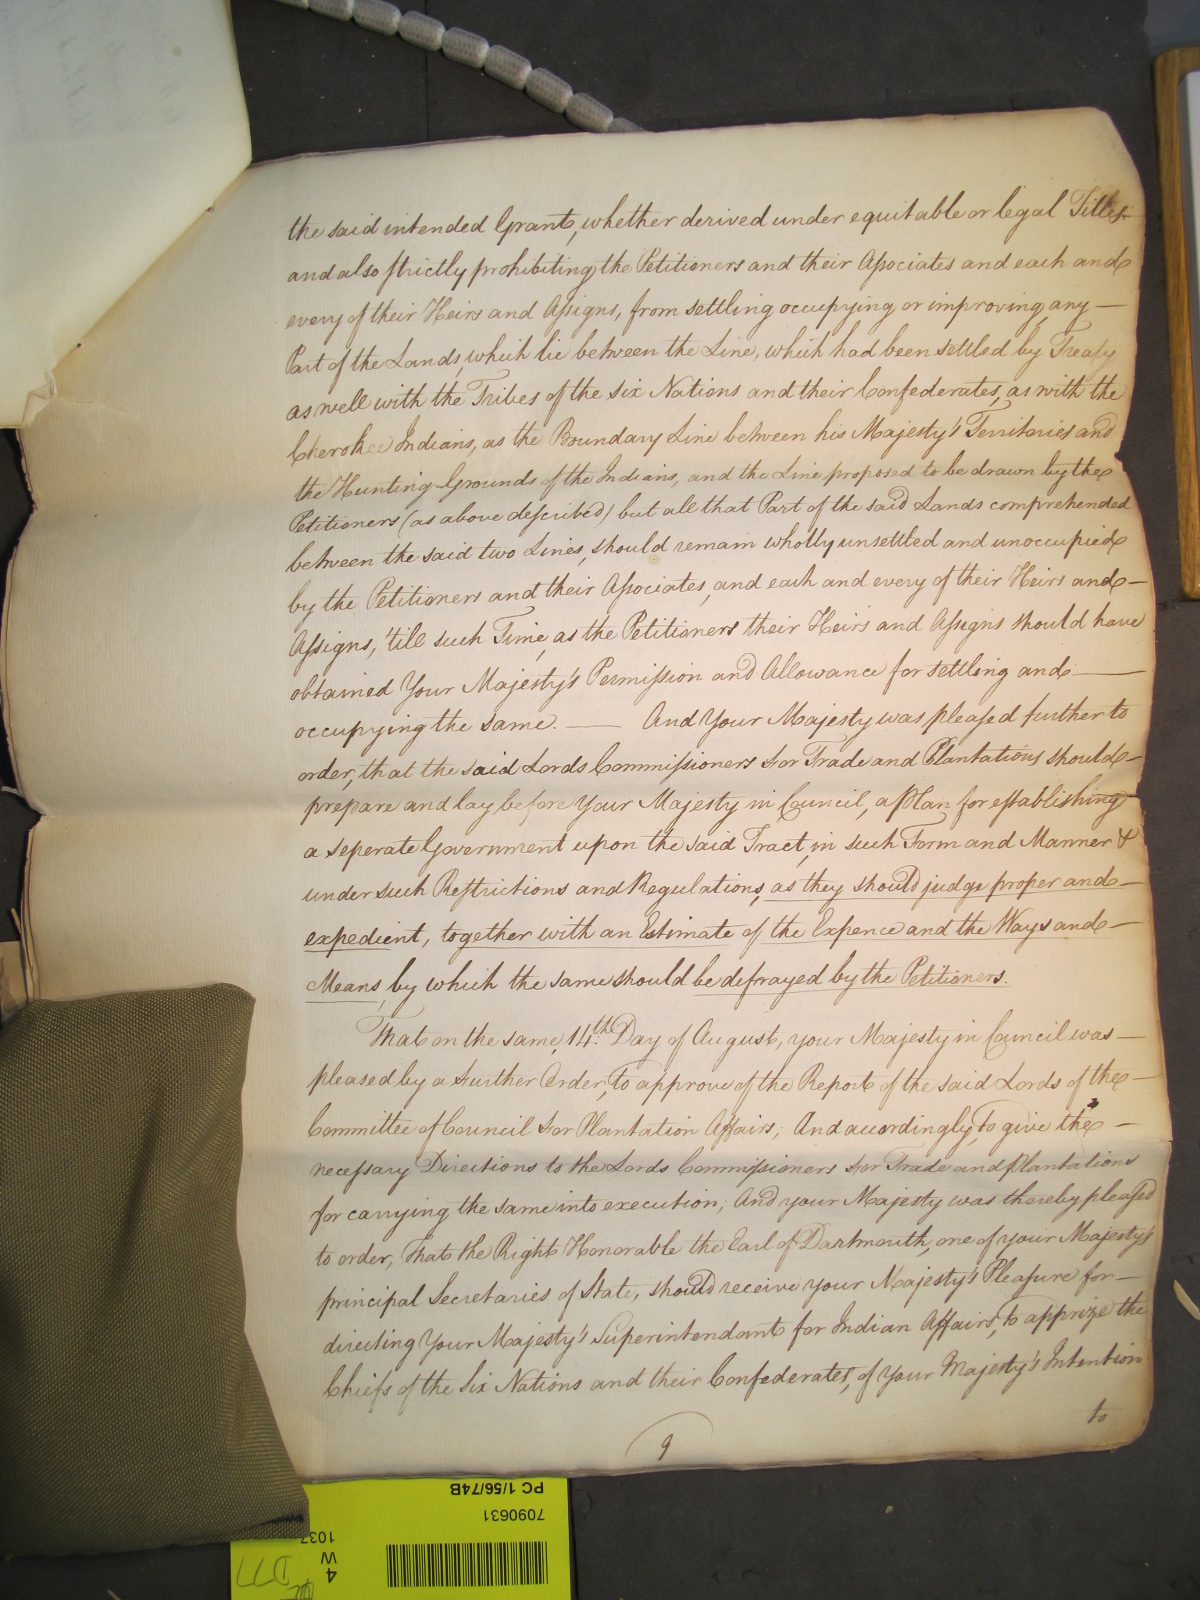 the said intended Grant, whether derived under equitable or legal Titles
and also strictly prohibiting the Petitioners and their Associates and each and
every of their Heirs and Assigns, from settling occupying or improving any —
Part of the Lands, which lie between the Line, which had been settled by Treaty
as well with the Tribes of the six Nations and their Confederates, as with the
Cherokee Indians, as the Boundary Line between his Majesty's Territories and
the Hunting Grounds of the Indians, and the Line proposed to be drawn by the
Petitioners (as above described) but all that Part of the said Lands comprehended
between the said two Lines, should remain wholly unsettled and unoccupied
by the Petitioners and their Associates, and each and every of their Heirs and —
Assigns, 'till such Time, as the Petitioners their Heirs and Assigns should have
obtained Your Majesty's Permission and Allowance for settling and —
occupying the same. — And Your Majesty was pleased further to
order, that the said Lords Commissioners for Trade and Plantations should —
prepare and lay before Your Majesty in Council, a Plan for establishing
a seperate Government upon the said Tract, in such Form and Manner &
under such Restrictions and Regulations, as they should judge proper and —
expedient, together with an Estimate of the Expence and the Ways and —
Means, by which the same should be defrayed by the Petitioners.
That on the same 14th. Day of August, your Majesty in Council was —
pleased by a further Order, to approve of the Report of the said Lords of the —
Committee of Council for Plantation Affairs; And accordingly, to give the —
necessary Directions to the Lords Commissioners for Trade and Plantations
for carrying the same into execution; And your Majesty was thereby pleased
to order, That the Right Honorable the Earl of Dartmouth, one of your Majesty's
principal Secretaries of State, should receive your Majesty's Pleasure for —
directing Your Majesty's Superintendant for Indian Affairs, to apprize the
Chiefs of the Six Nations and their Confederates, of Your Majesty's Intention
to
9
PC 1/56/74B
7090631
1037
4
W
D77